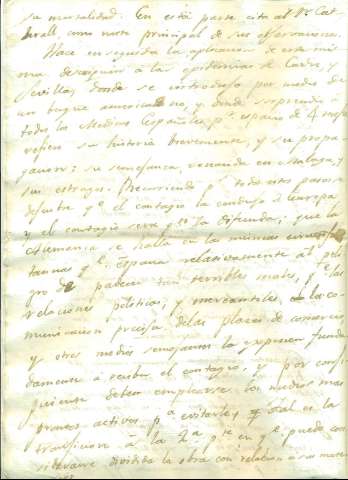 su mortalidad. En esta parte cita al Dr. Cat
hrall, como norte principal de sus observaciones.
Hace en seguida la aplicacion de este mis
mo a la epidemia de Cadiz, y
Sevilla, donde se introdujo por medio de
un buque americano, y donde sorprendió a
todos los Medicos Españoles pr. espacio de 4
refiere su historia brevemente, y su propa
gacion; su semejanza, en Malaga, y
sus estragos. Recorriendo pr. todos estos pasos
qe. el contagio la condujo á Europa
y el contagio será qn. la difunda; que la
Alemania se halla en las mismas
qe. España relativamente al peli
gro de padecer tan terribles males, y qe. las
relaciones politicas, y mercantiles, la co-
municacion precisa de las plazas de comercio,
y otros medios semejantes la exponen funda
damente á recibir el contagio, y por consi
guiente deben emplearse los medios mas
activos pa. evitarle, y tal es la
transicion á la 2a. pte. en qe. puede con
siderarse dividida la obra con relacion a su